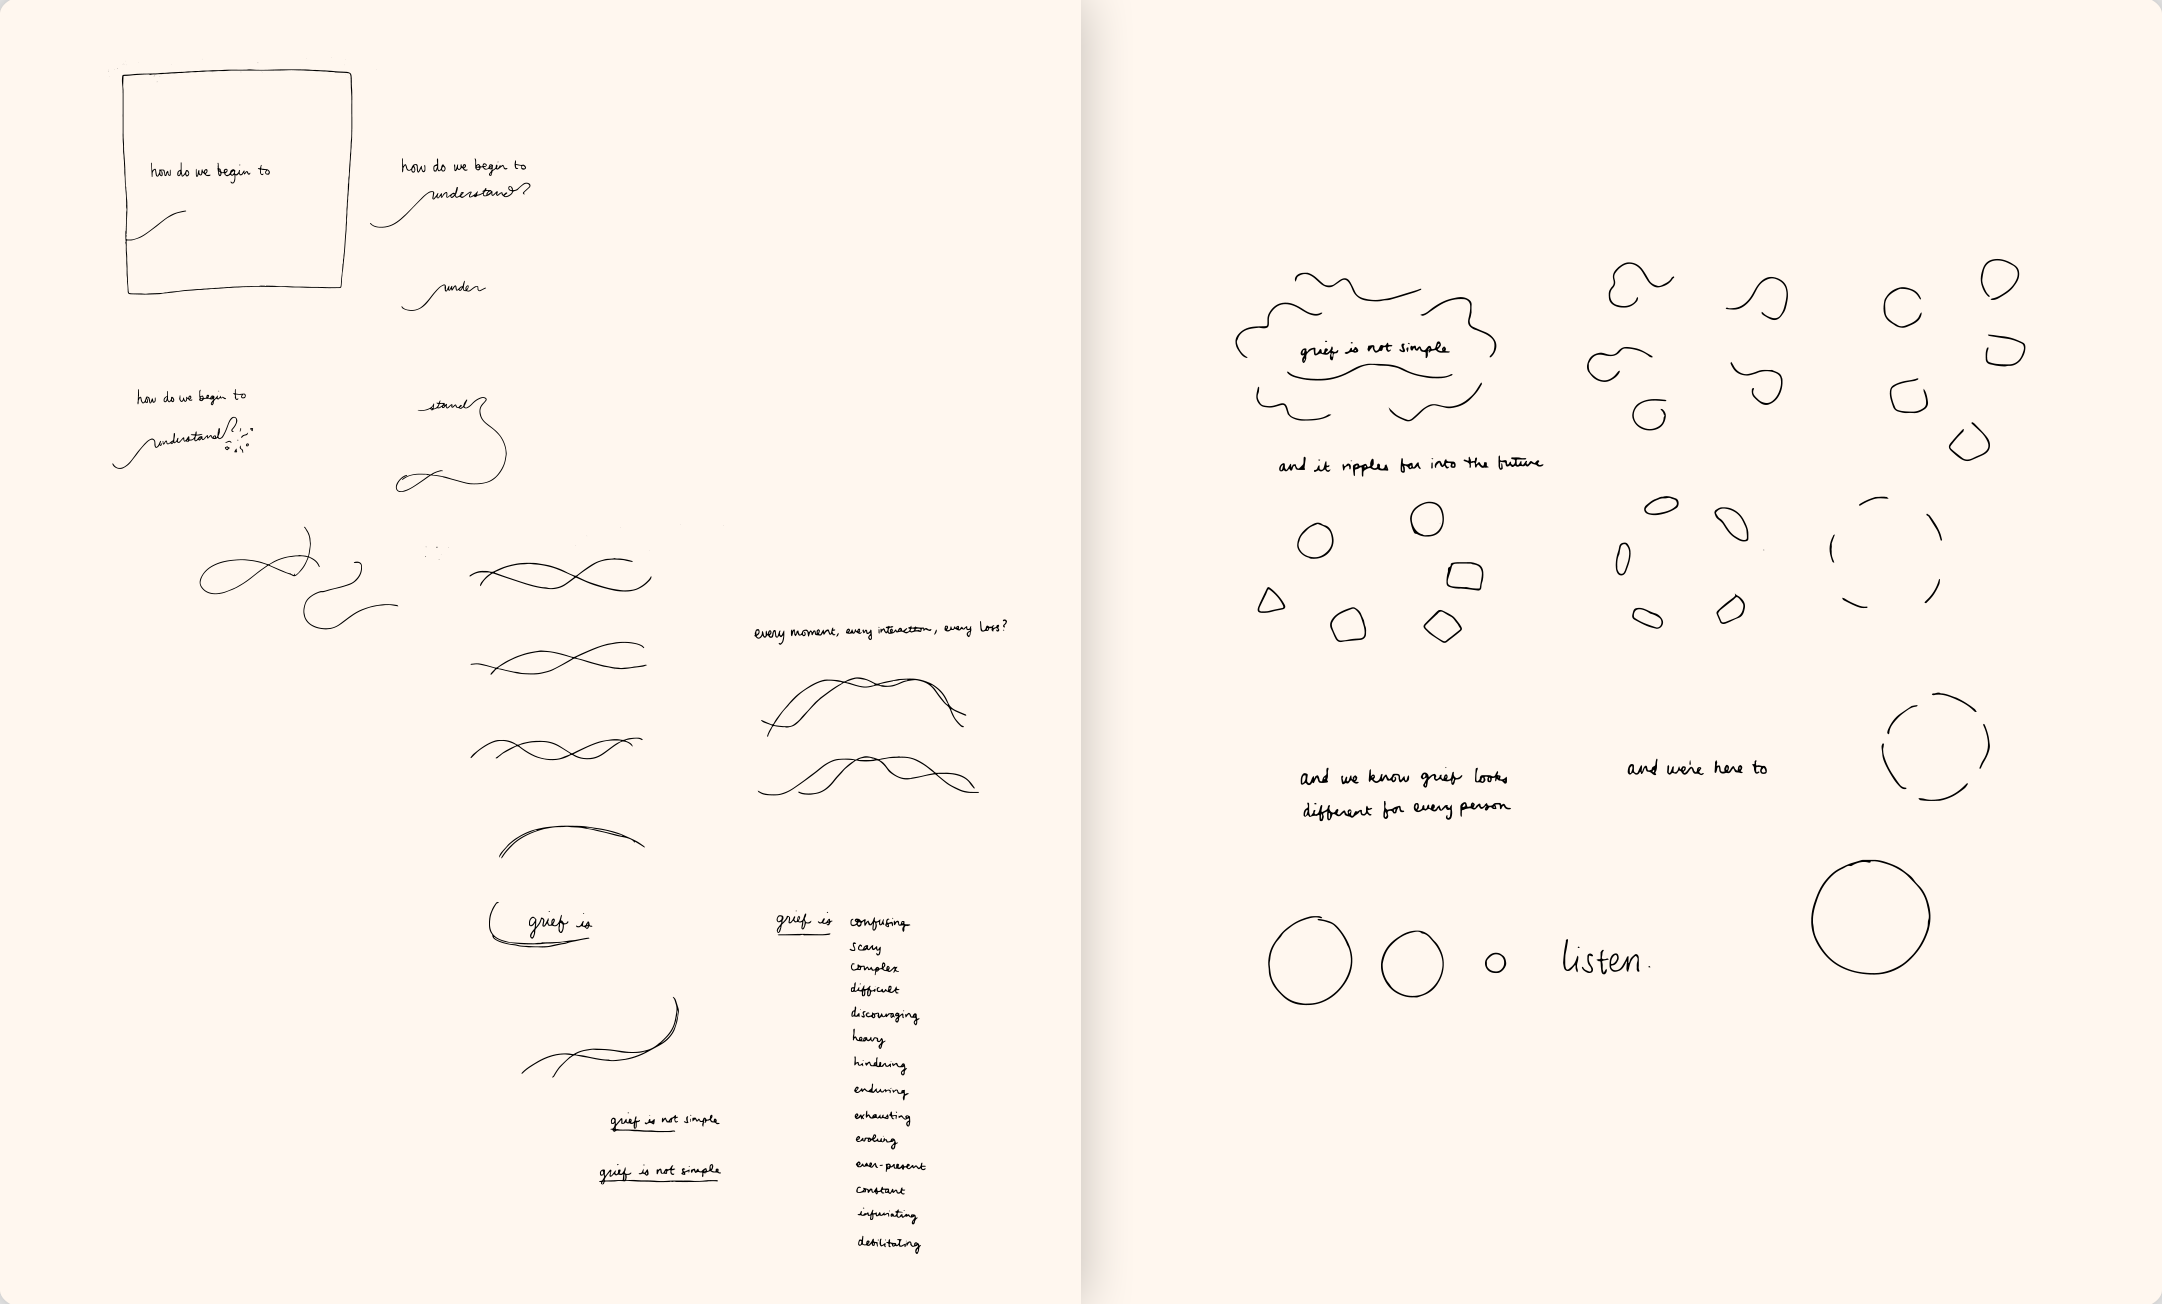 how do we begin to
how do we begin to
understand?
under
how do we begin to
understand?
stand
every moment, every interaction, every loss?
grief is
grief is
confusing
scary
complex
difficult
discouraging
heavy
hindering
enduring
exhausting
evolving
ever-present
constant
infuriating
debilitating
grief is not simple
grief is not simple
grief is not simple
and it ripples far into the future
and we know grief looks
different for every person
and we're here to
listen.